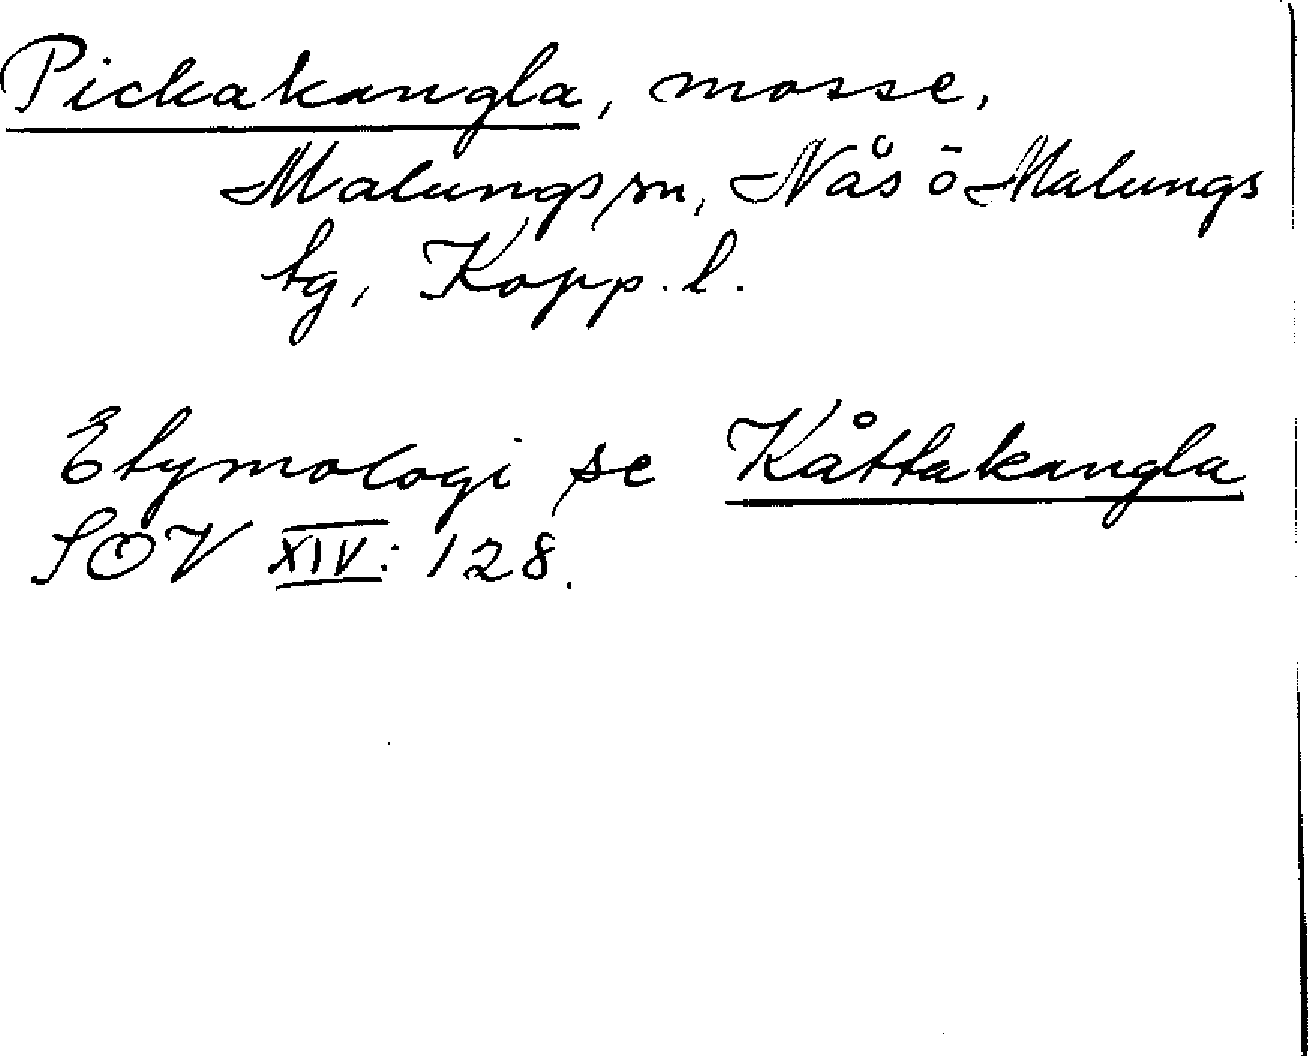 Pickakangla, mosse,
Malungs sn, Nås o Malungs
tg, Kopp. l.
Etymologi se Kåttakangla
SOV XIV: 128.